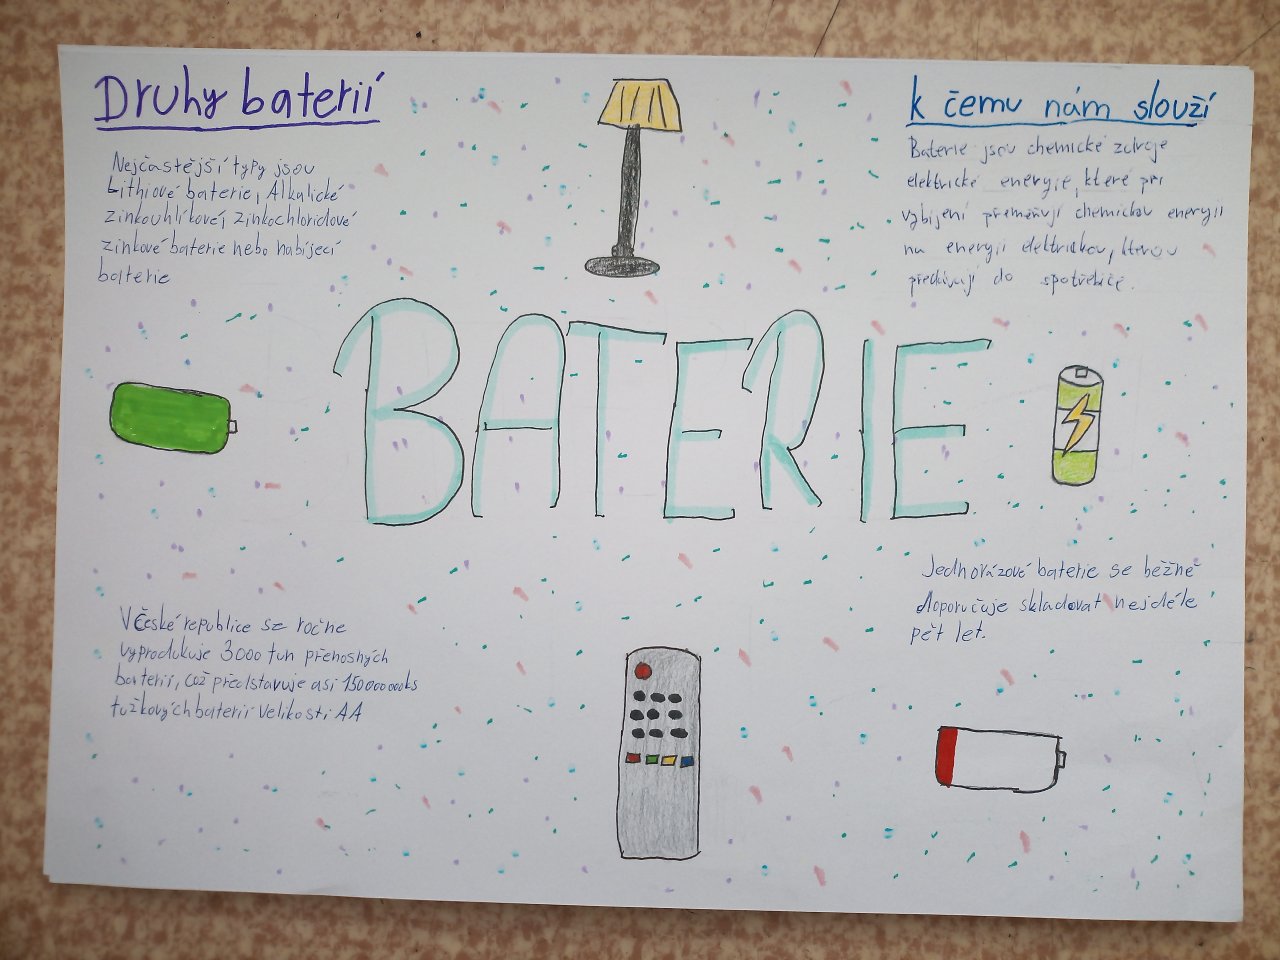 Druhy baterií
Nejčastější typy jsou
Lithiové baterie, Alkalické
zinkouhlíkové, zinkochloridové
zinkové baterie nebo nabíjecí
baterie
k čemu nám slouží
Baterie jsou chemické zdroje
elektrické energie, které při
vybíjení přeměňují chemickou energii
na energii elektrickou, kterou
předávají do spotřebiče.
BATERIE
V České republice se ročne
vyprodukuje 3000 tun přenosných
baterií, což představuje asi 150000000ks
tužkových baterií velikosti AA
Jednorázové baterie se běžně
doporučuje skladovat nejdéle
pět let.